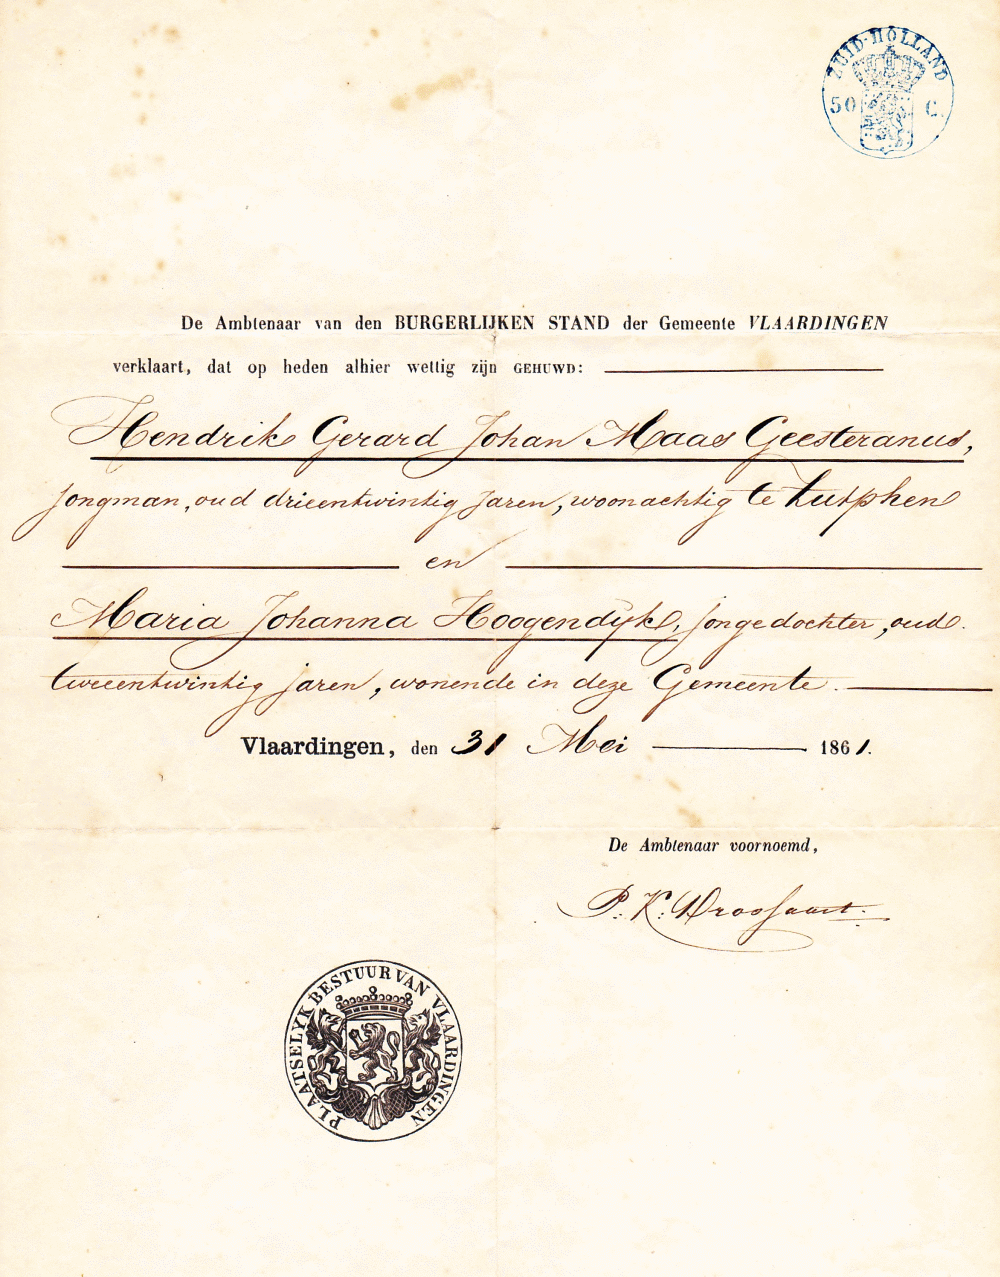 ZUID-HOLLAND
50 C.
De Ambtenaar van den BURGERLIJKEN STAND der Gemeente VLAARDINGEN
verklaart, dat op heden alhier wettig zijn GEHUWD:
Hendrik Gerard Johan Maas Geesteranus,
jongman, oud drieentwintig jaren, woonachtig te Zutphen
en
Maria Johanna Hoogendijk, jongedochter, oud
tweeentwintig jaren, wonende in deze Gemeente.
Vlaardingen, den 31 Mei 1861.
De Ambtenaar voornoemd,
P. K. Drossaart.
PLAATSELYK BESTUUR VAN VLAARDINGEN